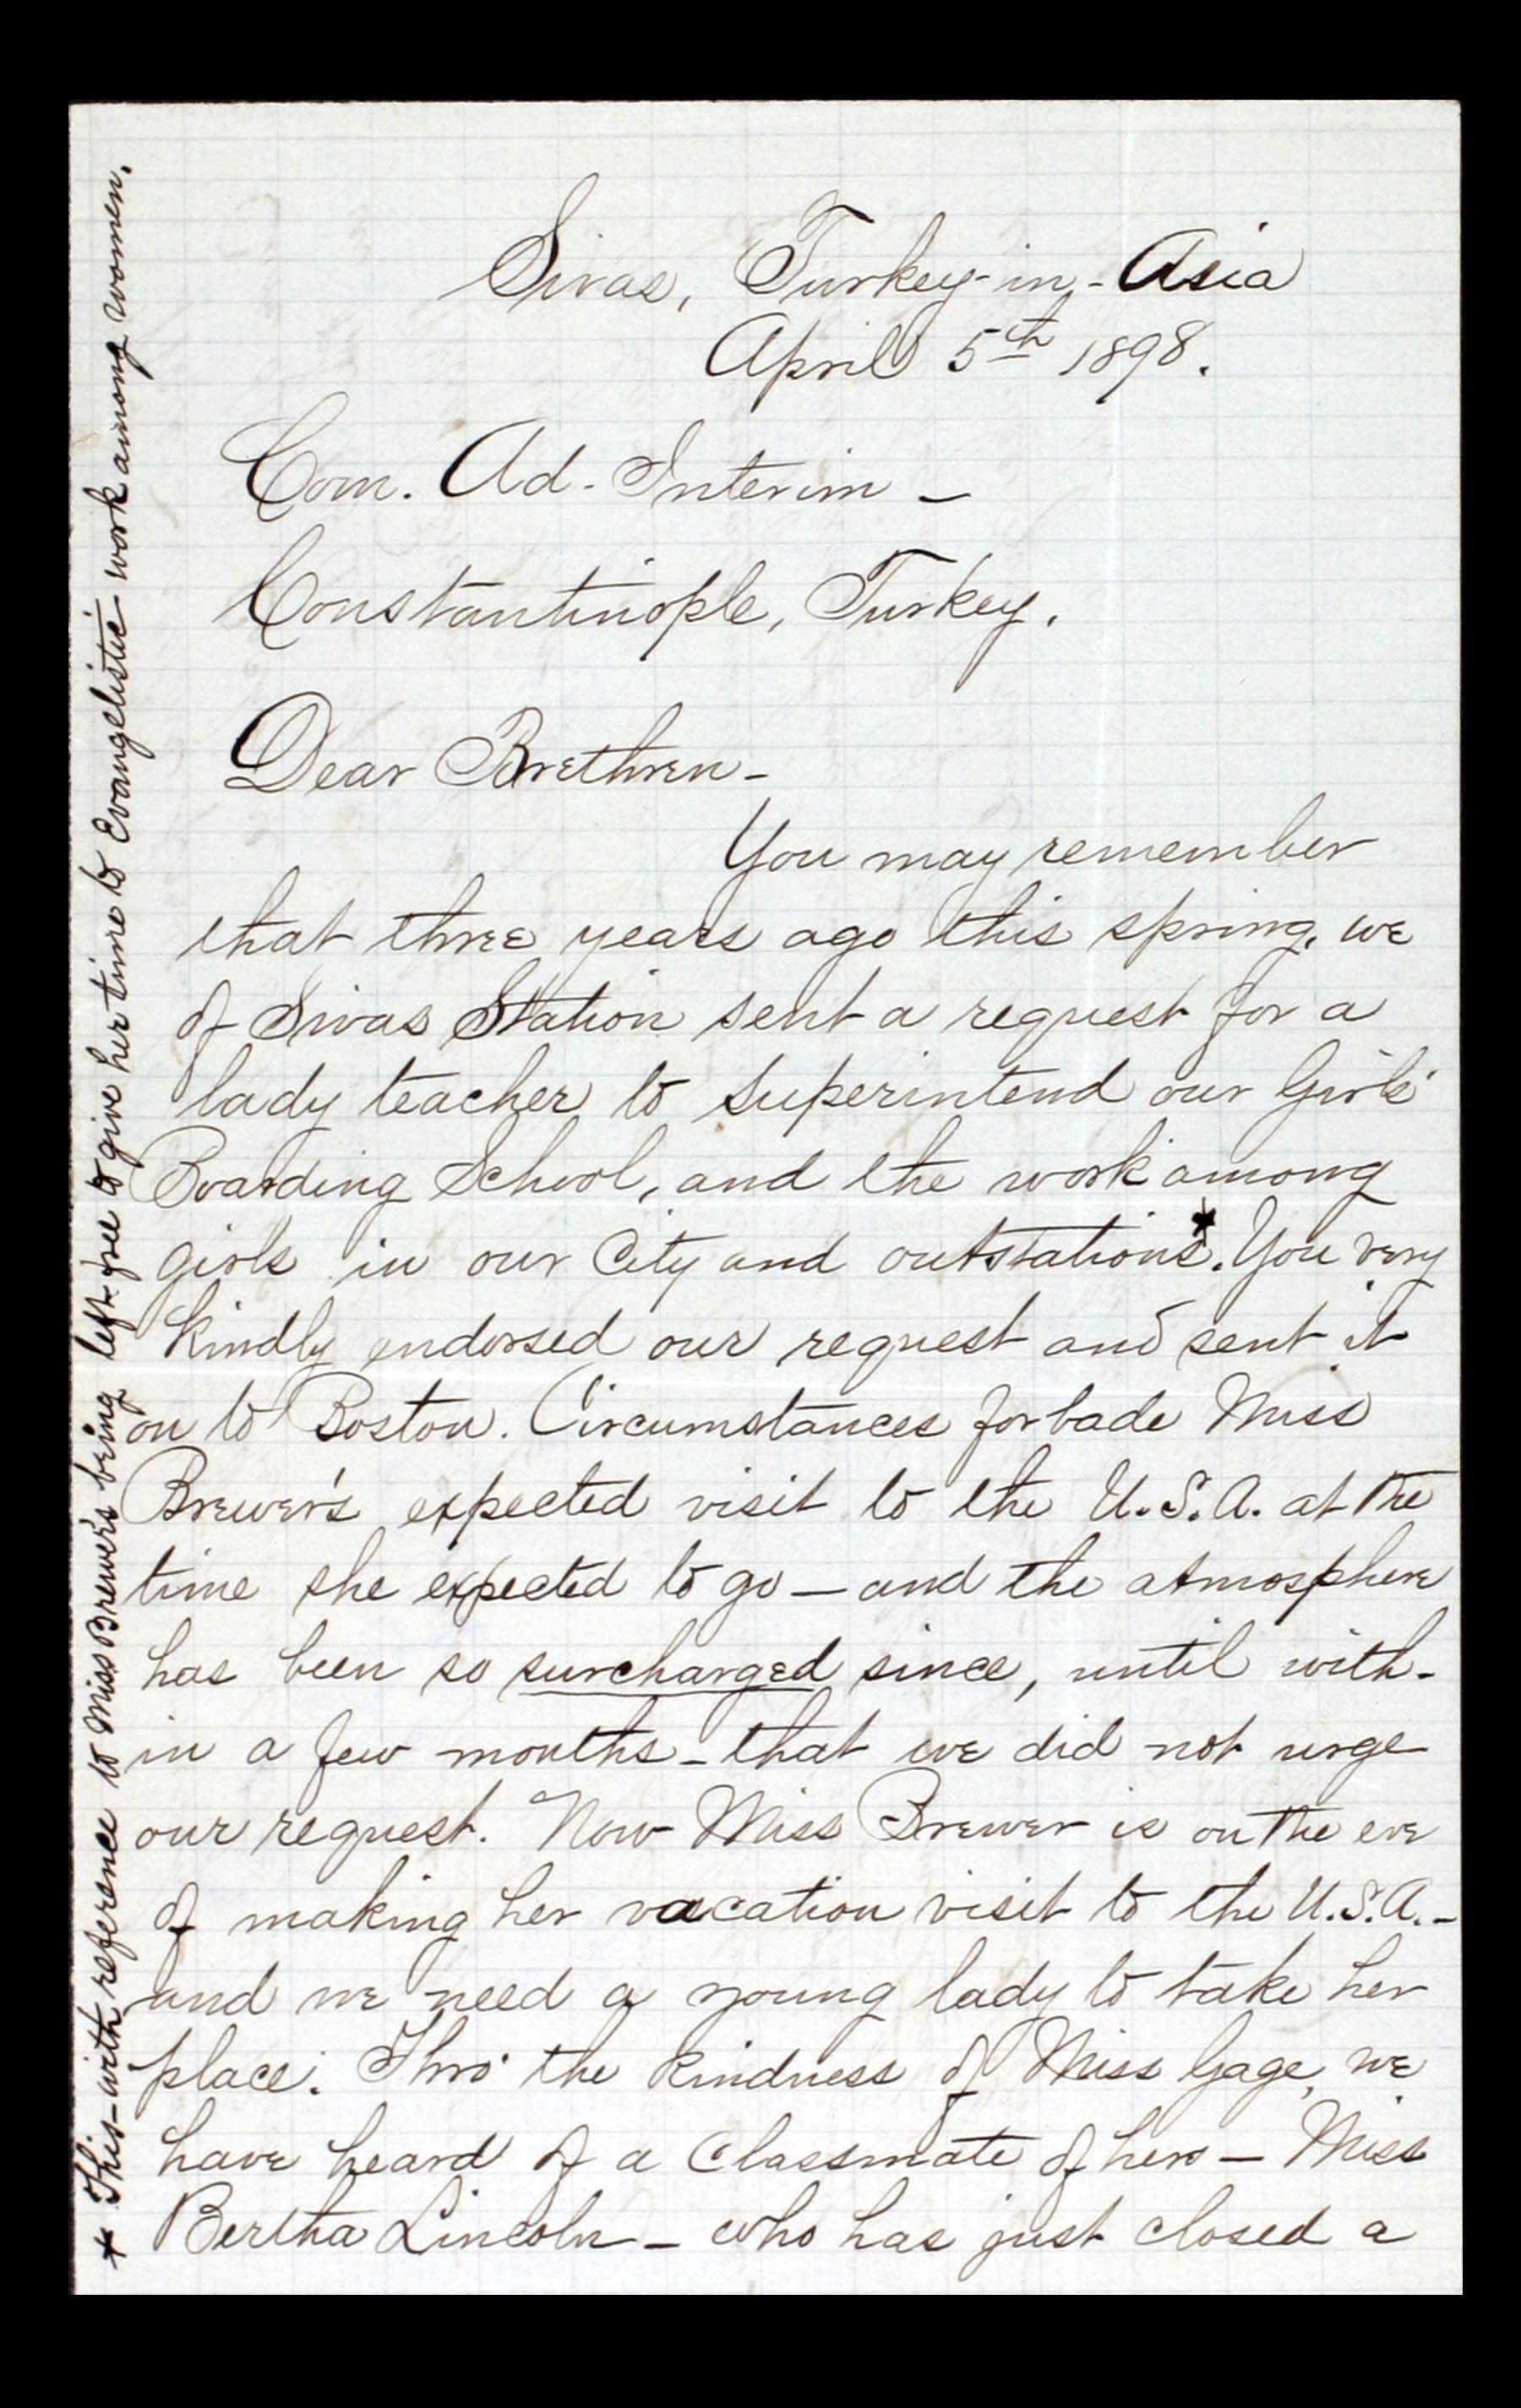 Sivas, Turkey-in-Asia
April 5th 1898.
Com. Ad-Interim -
Constantinople, Turkey.
Dear Brethren -
You may remember
that three years ago this spring, we
of Sivas Station sent a request for a
lady teacher to superintend our Girls'
Boarding School, and the work among
girls in our City and outstations*. You very
kindly endorsed our request and sent it
on to Boston. Circumstances forbade Miss
Brewer's expected visit to the U.S.A. at the
time she expected to go — and the atmosphere
has been so surcharged since, until with-
in a few months - that we did not urge
our request. Now Miss Brewer is on the eve
of making her vacation visit to the U.S.A. -
and we need a young lady to take her
place. Thro' the kindness of Miss Gage, we
have heard of a Classmate of hers — Miss
Bertha Lincoln — who has just closed a
* This - with reference to Miss Brewer's being left free to give her time to Evangelistic - work among women.